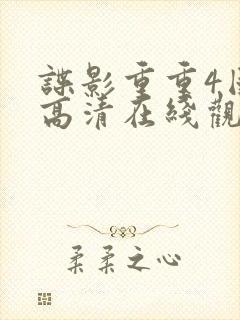 諜影重重4
高清在綫觀
柔柔之心